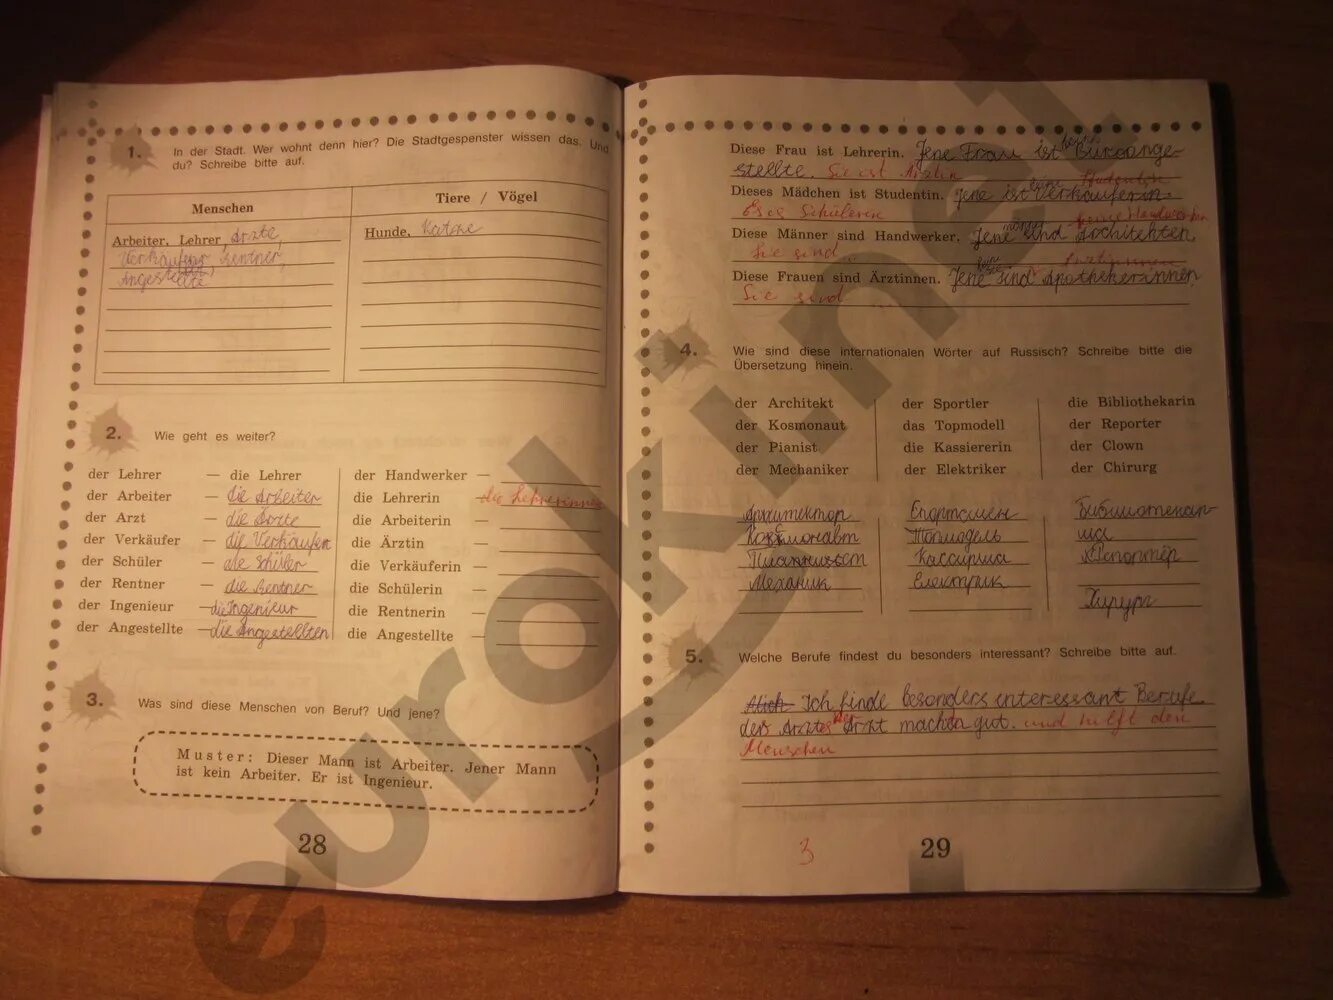 1. In der Stadt. Wer wohnt denn hier? Die Stadtgespenster wissen das. Und
du? Schreibe bitte auf.
Menschen
Tiere / Vögel
Arbeiter, Lehrer, Arzte,
Verkäufer, Rentner,
Angestellte
Hunde, Katze
2. Wie geht es weiter?
der Lehrer — die Lehrer
der Arbeiter — die Arbeiter
der Arzt — die Arzte
der Verkäufer — die Verkäufer
der Schüler — die Schüler
der Rentner — die Rentner
der Ingenieur — die Ingenieur
der Angestellte — die Angestellten
der Handwerker —
die Lehrerin — die Lehrerinnen
die Arbeiterin —
die Ärztin —
die Verkäuferin —
die Schülerin —
die Rentnerin —
die Angestellte —
3. Was sind diese Menschen von Beruf? Und jene?
Muster: Dieser Mann ist Arbeiter. Jener Mann
ist kein Arbeiter. Er ist Ingenieur.
28
Diese Frau ist Lehrerin. Jene Frau ist Büroange-
stellte. Sie ist Arztin
Dieses Mädchen ist Studentin. Jene ist Verkäuferin.
Es is Schülerin
Diese Männer sind Handwerker. Jene sind Architekten.
Sie sind
Diese Frauen sind Ärztinnen. Jene sind Apothekerinnen.
Sie sind
4. Wie sind diese internationalen Wörter auf Russisch? Schreibe bitte die
Übersetzung hinein.
der Architekt
der Kosmonaut
der Pianist
der Mechaniker
der Sportler
das Topmodell
die Kassiererin
der Elektriker
die Bibliothekarin
der Reporter
der Clown
der Chirurg
Архитектор
Космонавт
Пианист
Механик
Спортсмен
Топмодель
Кассирша
Електрик
Библиотекар-
ша
Репортёр
Хирург
5. Welche Berufe findest du besonders interessant? Schreibe bitte auf.
Ich finde besonders interessant Berufe
des Arztes Der Arzt machen gut. und hilft den
Menschen
3
29
eurokinet